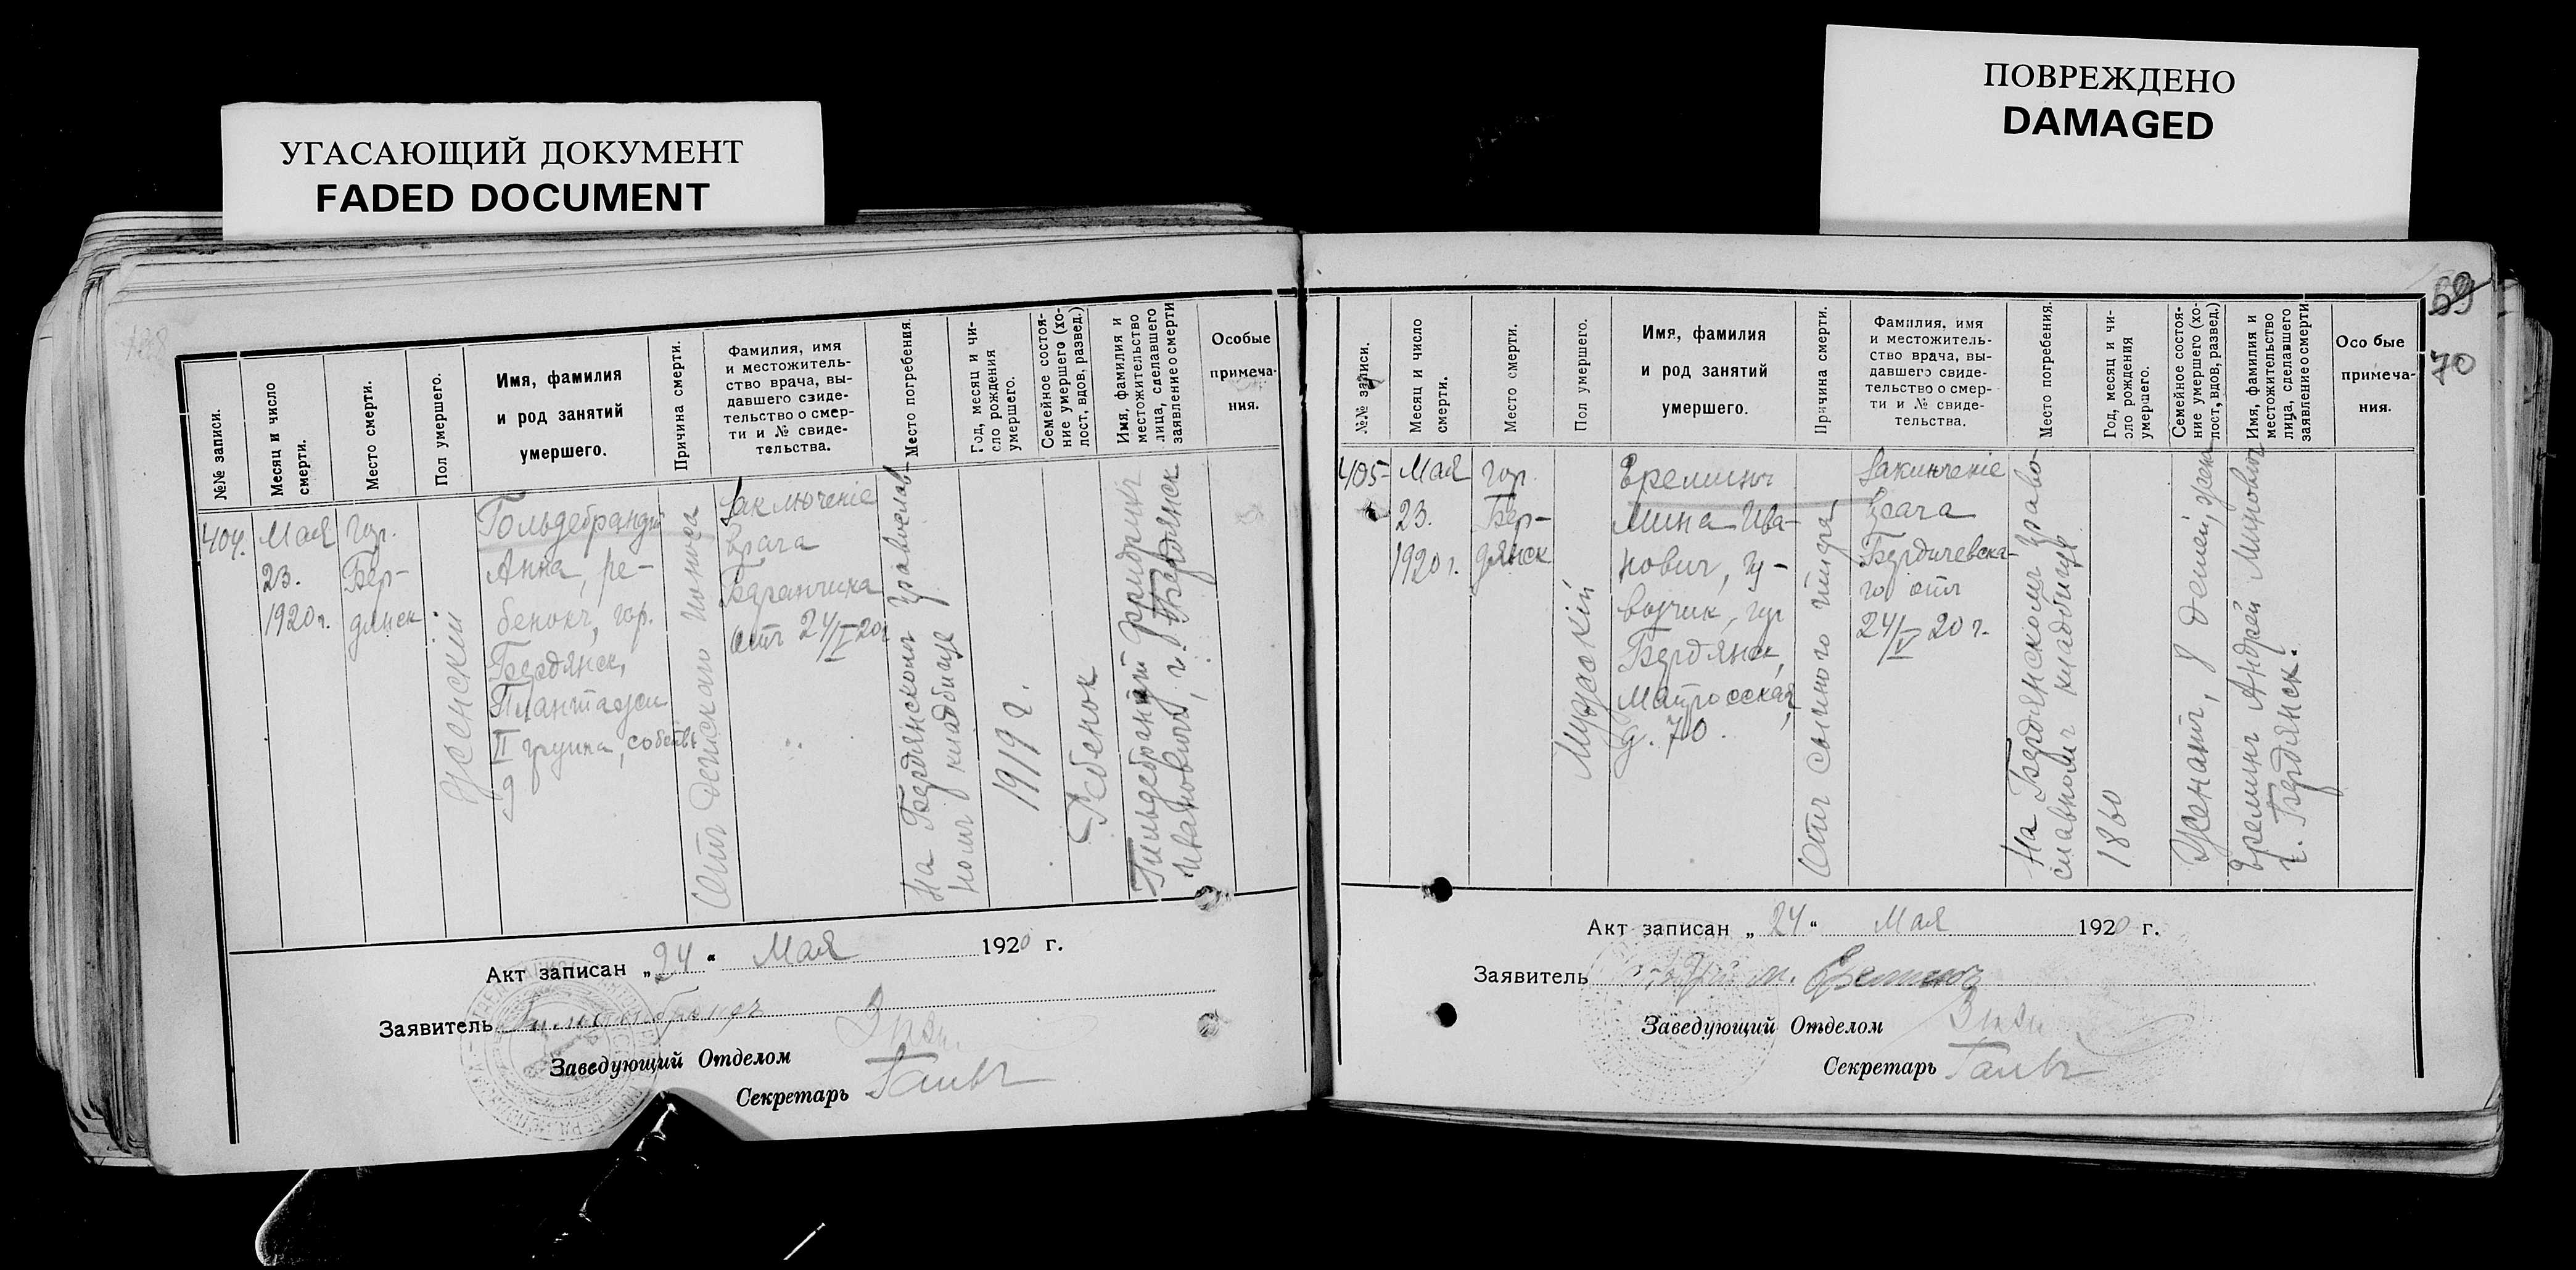 УГАСАЮЩИЙ ДОКУМЕНТ
FADED DOCUMENT
ПОВРЕЖДЕНО
DAMAGED
№№ записи.
Месяц и число
смерти.
Место смерти.
Пол умершего.
Имя, фамилия
и род занятий
умершего.
Причина смерти.
Фамилия, имя
и местожитель-
ство врача, вы-
давшего свиде-
тельство о смер-
ти и № свиде-
тельства.
Место погребения.
Год, месяц и чи-
сло рождения
умершего.
Семейное состоя-
ние умершего (хо-
лост, вдов, развед.)
Имя, фамилия и
местожительство
лица, сделавшего
заявление о смерти
Особые
примеча-
ния.
404.
Мая
23.
1920 г.
гор.
Бер-
дянск
Женский
Гольдебрандт
Анна, ре-
бенокъ, гор.
Бердянск,
Плантации
II группа, собств.
д
Отъ детскаго поноса
Заключеніе
врача
отъ 24/V 20 г
На Бердянскомъ православ-
номъ кладбище
1919 г.
Ребенок
Гильдебрандт Фридрихъ
Ивановичъ, г. Бердянск
Акт записан „24“ Мая 1920 г.
Заявитель
Заведующий Отделом
Секретарь
69
70
№№ записи.
Месяц и число
смерти.
Место смерти.
Пол умершего.
Имя, фамилия
и род занятий
умершего.
Причина смерти.
Фамилия, имя
и местожитель-
ство врача, вы-
давшего свиде-
тельство о смер-
ти и № свиде-
тельства.
Место погребения.
Год, месяц и чи-
сло рождения
умершего.
Семейное состоя-
ние умершего (хо-
лост, вдов, развед.)
Имя, фамилия и
местожительство
лица, сделавшего
заявление о смерти
Особые
примеча-
ния.
405
Мая
23.
1920 г.
гор.
Бер-
дянск
Мужской
Ереминъ
Мина Ива-
нович, из-
возчик, гор
Бердянск,
Матросская,
д. 70.
Отъ сыпного тифа
Заключеніе
врача
Бердичевска-
го отъ
24/V 20 г.
На Бердянскомъ право-
славномъ кладбище
1860
Женатъ, 8 детей, жена
Ереминъ Андрей Миновичъ
г. Бердянск.
Акт записан „24“ Мая 1920 г.
Заявитель М. Ереминъ
Заведующий Отделом
Секретарь